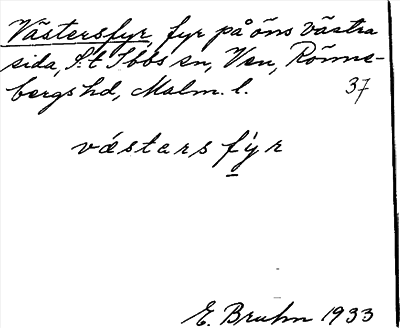 Västersfyr, fyr på öns västra
sida, S:t Ibbs sn, Ven, Rönne-
bergs hd, Malm. l. 37
västars fýr
E. Bruhn 1933